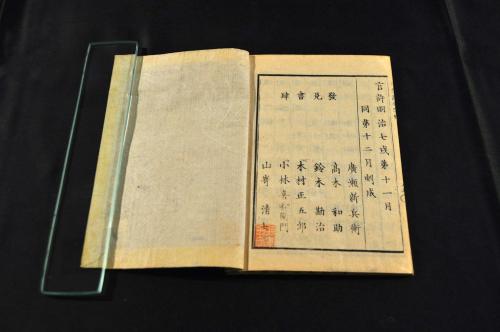 官許明治七戌第十一月
同第十二月刻成
發兌書肆
廣瀬新兵衛
高木和助
鈴木勘治
木村正五郎
小林喜右衛門
山嵜清七